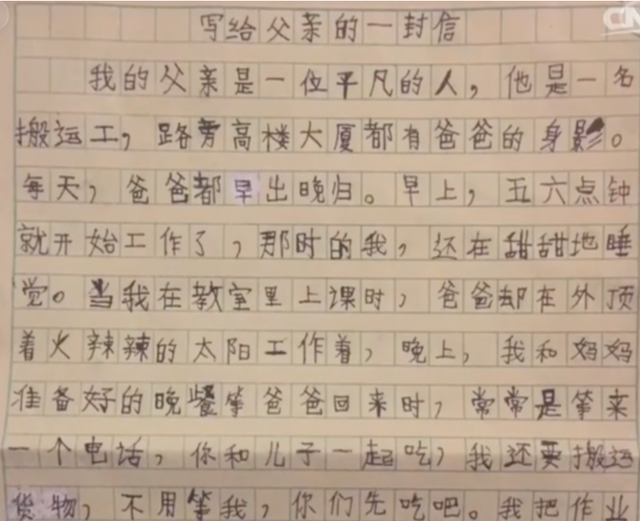 写给父亲的一封信
我的父亲是一位平凡的人，他是一名
搬运工，路旁高楼大厦都有爸爸的身影。
每天，爸爸都早出晚归。早上，五六点钟
就开始工作了，那时的我，还在甜甜地睡
觉。当我在教室里上课时，爸爸却在外顶
着火辣辣的太阳工作着，晚上，我和妈妈
准备好的晚餐等爸爸回来时，常常是等来
一个电话，你和儿子一起吃，我还要搬运
货物，不用等我，你们先吃吧。我把作业